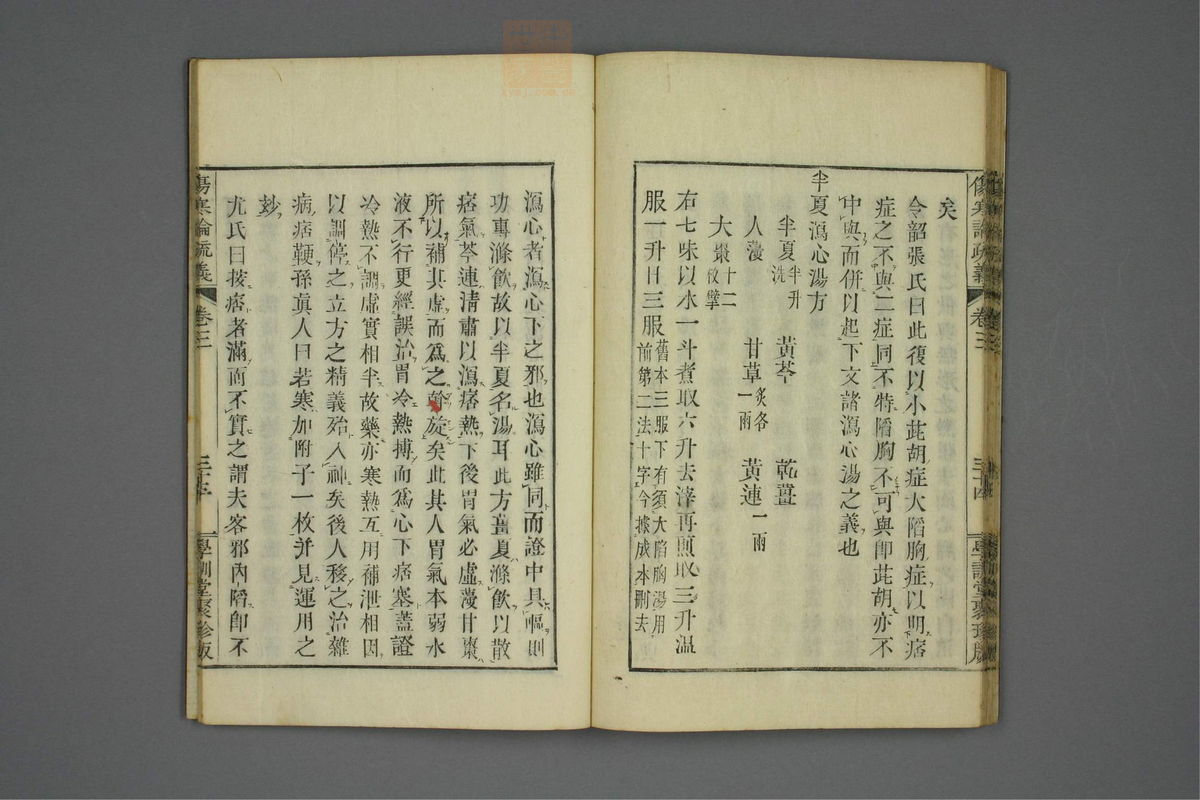 矣
令韶張氏曰此復以小茈胡症大陷胸症以明痞
症之不與二症同不特陷胸不可與卽茈胡亦不
中與而併以起下文諸瀉心湯之義也
半夏瀉心湯方
半夏半升洗 黃芩 乾薑
人蓡 甘草炙各一兩 黃連一兩
大棗十二枚擘
右七味以水一斗煮取六升去滓再煎取三升温
服一升日三服舊本三服下有須大陷胸湯用前第二法十字今據成本刪去
傷寒論疏義 卷三 學訓堂聚珍版
瀉心者瀉心下之邪也瀉心雖同而證中具嘔則
功專滌飲故以半夏名湯耳此方薑夏滌飲以散
痞氣芩連淸肅以瀉痞熱下後胃氣必虛蓡甘棗
所以補其虛而爲之斡旋矣此其人胃氣本弱水
液不行更經誤治胃冷熱搏而爲心下痞塞蓋證
冷熱不調虛實相半故藥亦寒熱互用補泄相因
以調停之立方之精義殆入神矣後人移之治雜
病痞鞕孫眞人曰若寒加附子一枚并見運用之
玅
尤氏曰按痞者滿而不實之謂夫客邪內陷卽不
傷寒論疏義 卷三 學訓堂聚珍版